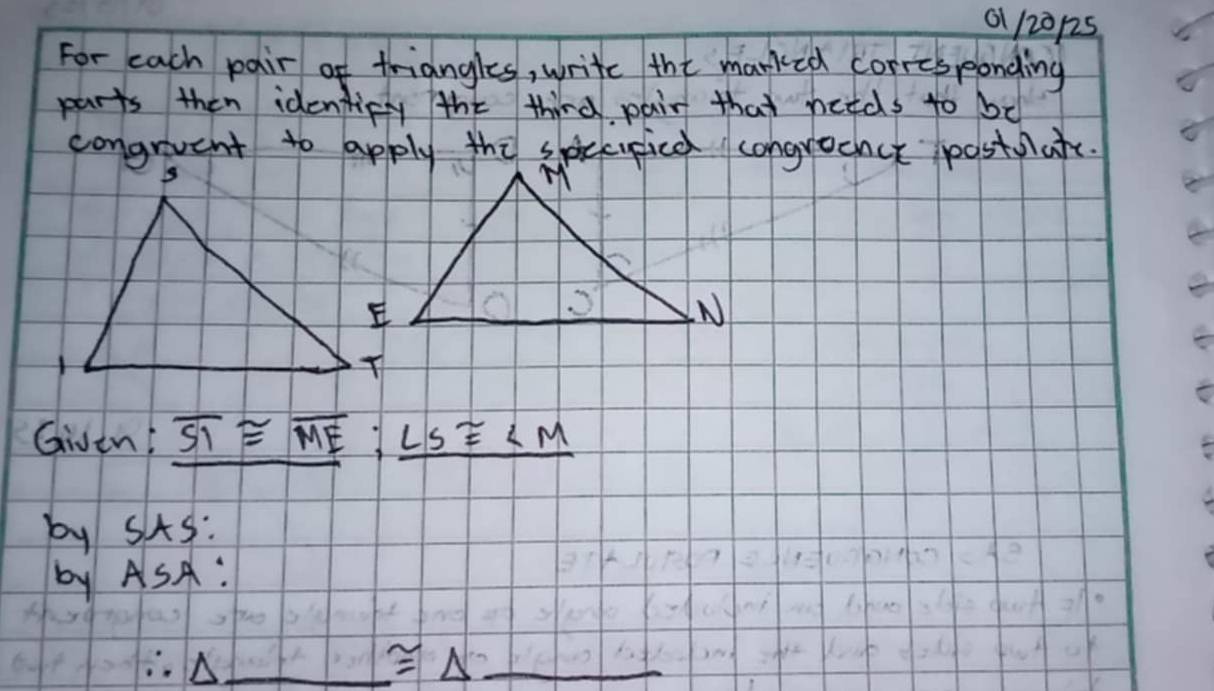 01/20/25
For each pair of triangles, write the marked corresponding
parts then identify the third pair that needs to be
congruent to apply the specified congruence postulate.
S
M
E
N
I
T
Given: SI ≅ ME ; ∠S ≅ ∠M
by SAS:
by ASA:
∴ Δ________ ≅ Δ ________